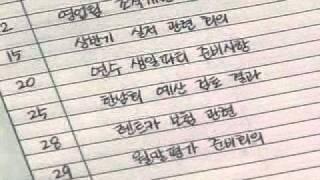 2 영업팀
15 상반기 실적 관련 회의
20 연수 생일파티 준비사항
25 예산 검토 결과
28 렌트카 보험 관련
29 월말평가 준비회의